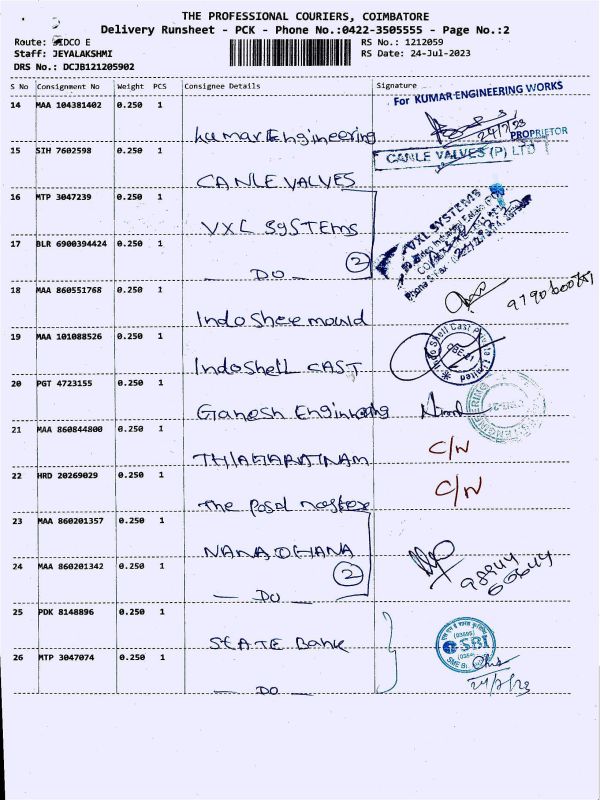 THE PROFESSIONAL COURIERS, COIMBATORE
Delivery Runsheet - PCK - Phone No.:0422-3505555 - Page No.:2
Route: SIDCO E RS No.: 1212059
Staff: JEYALAKSHMI RS Date: 24-Jul-2023
DRS No.: DCJB121205902
S No Consignment No Weight PCS Consignee Details Signature
For KUMAR ENGINEERING WORKS
14 MAA 104381402 0.250 1 Kumar Engineering 24/7/23
PROPRIETOR
15 SIH 7602598 0.250 1 CANLE VALVES CANLE VALVES (P) LTD
16 MTP 3047239 0.250 1 VXL SYSTEMS VXL SYSTEMS
17 BLR 6900394424 0.250 1 — DO — 2
18 MAA 860551768 0.250 1 Indo Shee mould
19 MAA 101088526 0.250 1 Indo Shell CAST Indo Shell Cast Private Limited
20 PGT 4723155 0.250 1 Ganesh Engineering
21 MAA 860844800 0.250 1 THIAGARATNAM C/N
22 HRD 20269029 0.250 1 The Posd master C/N
23 MAA 860201357 0.250 1 NANADHANA
24 MAA 860201342 0.250 1 — DO — 2
25 PDK 8148896 0.250 1 STATE Bank SBI
26 MTP 3047074 0.250 1 — DO — 24/7/23